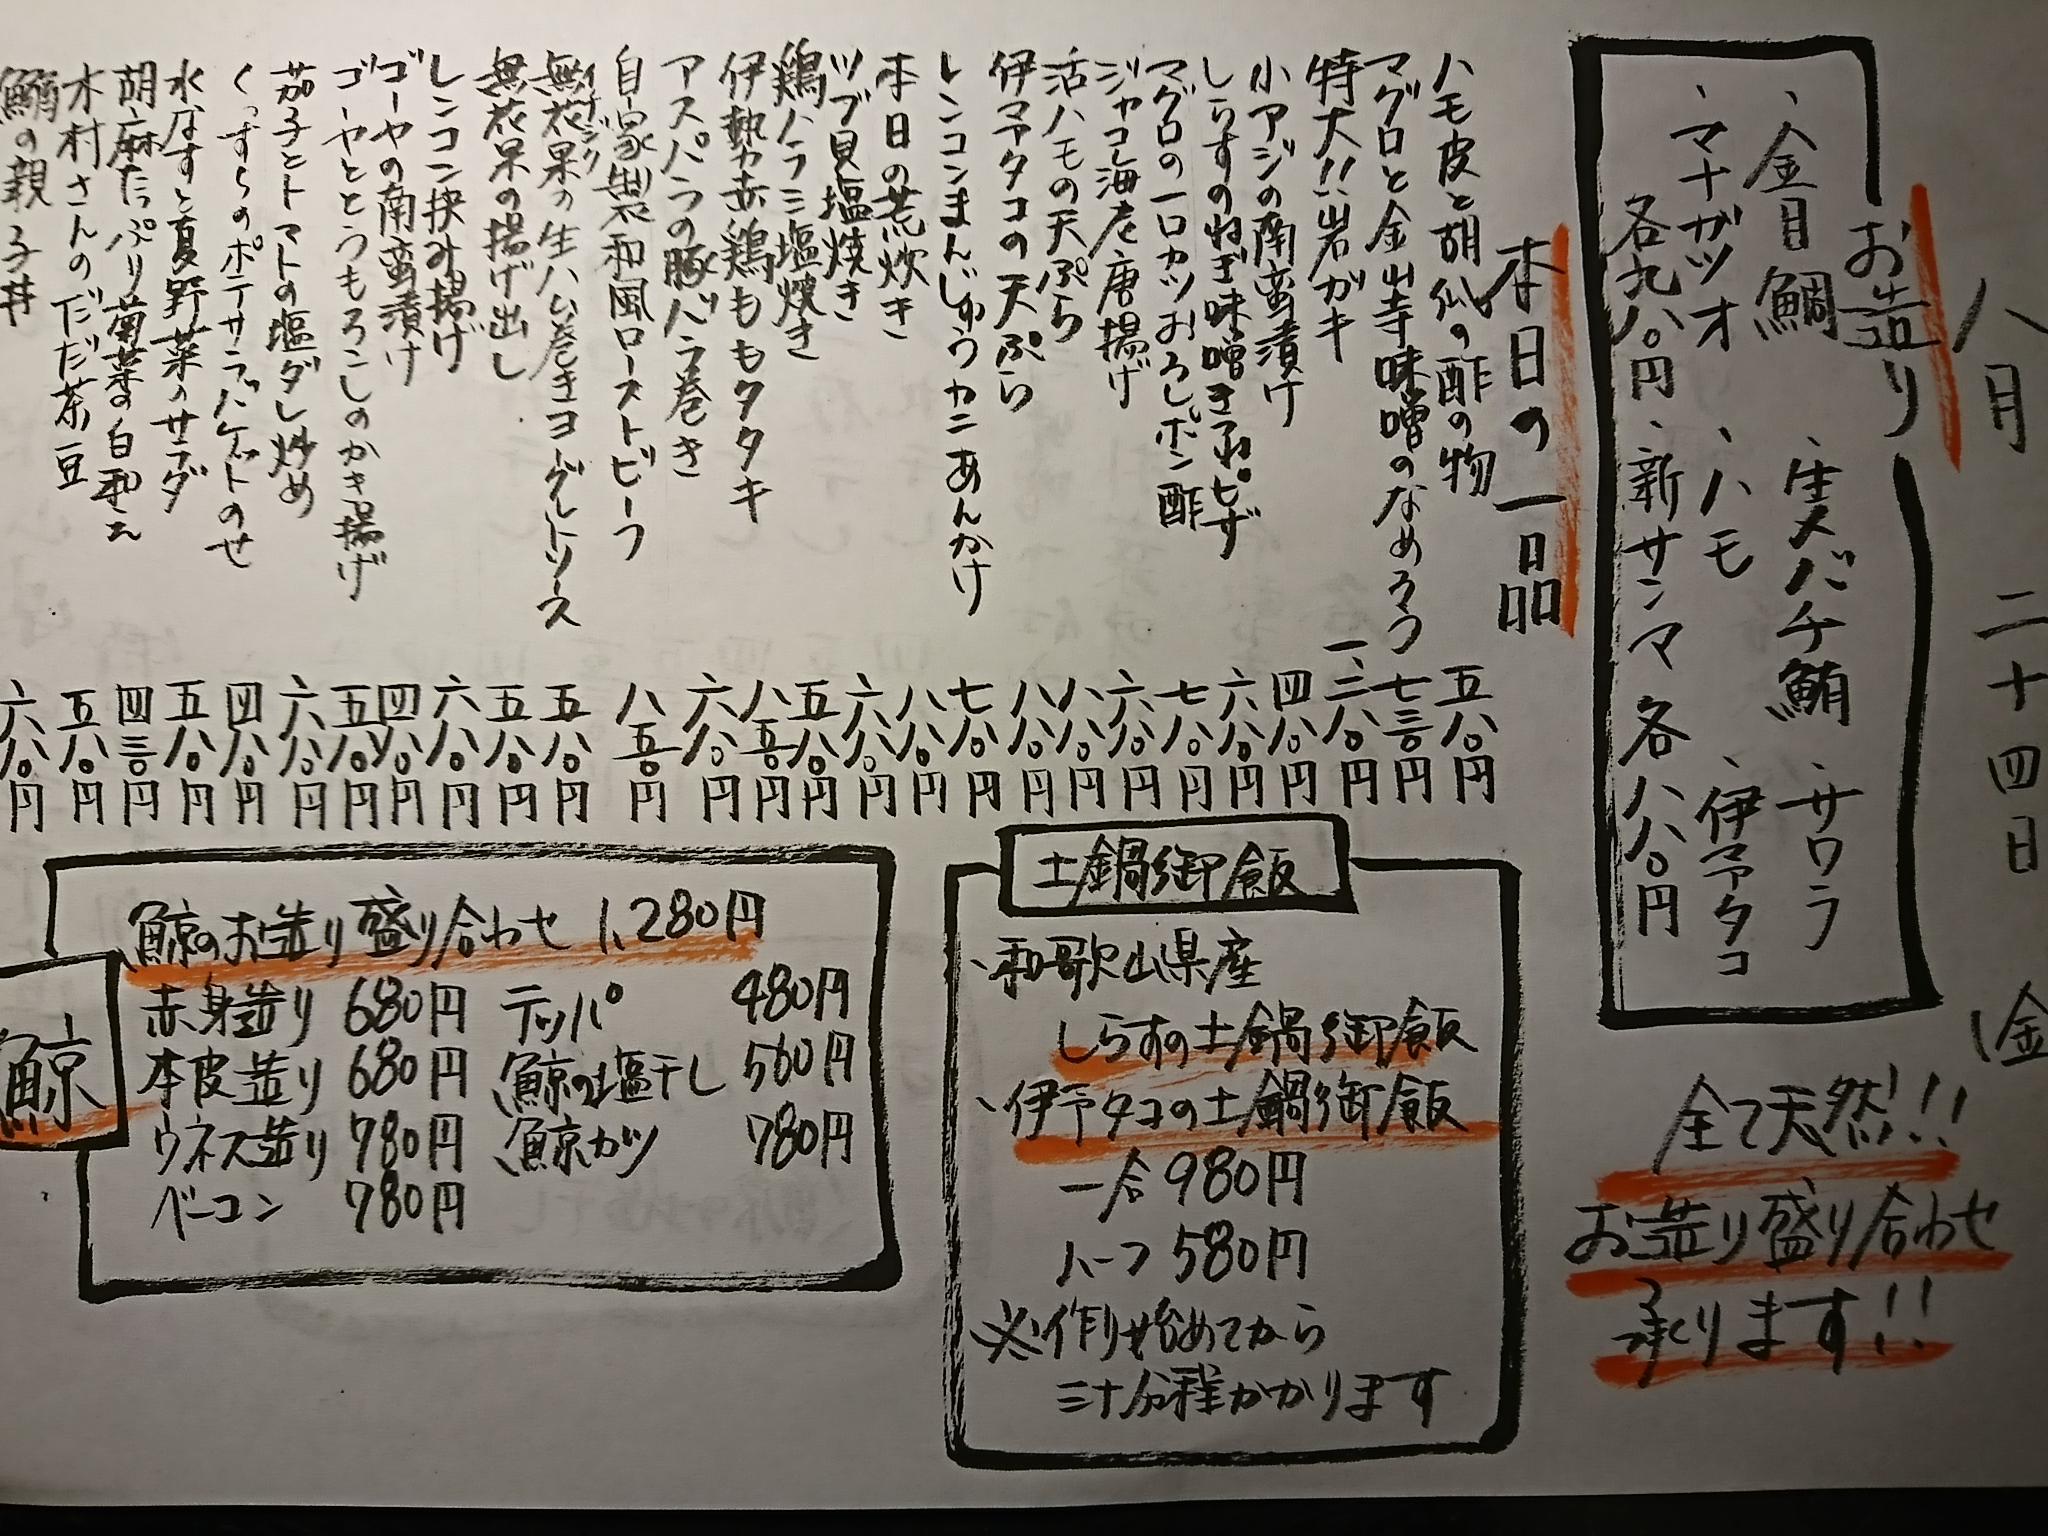 八月 二十四日 (金
お造り
、金目鯛 、生メバチ鮪 、サワラ
、マナガツオ 、ハモ 、伊予タコ
各九八〇円 、新サンマ 各八八〇円
全て天然!!
お造り盛り合わせ
承ります!!
本日の一品
ハモ皮と胡瓜の酢の物 五八〇円
マグロと金山寺味噌のなめろう 七三〇円
特大!!岩ガキ 一、二八〇円
小アジの南蛮漬け 四八〇円
しらすのねぎ味噌き子ピザ 六八〇円
マグロの一口カツおろしポン酢 七八〇円
ジャコ海老唐揚げ 六八〇円
活ハモの天ぷら 八八〇円
伊予タコの天ぷら 八八〇円
レンコンまんじゅうカニあんかけ 七八〇円
本日の荒炊き 八八〇円
ツブ貝塩焼き 六八〇円
鶏ハラミ塩焼き 五八〇円
伊勢赤鶏ももタタキ 八五〇円
アスパラの豚バラ巻き 六八〇円
自家製和風ローストビーフ 八五〇円
イチジク
無花果の生ハム巻きヨーグルトソース 五八〇円
無花果の揚げ出し 五八〇円
レンコン挟み揚げ 六八〇円
ゴーヤの南蛮漬け 四八〇円
ゴーヤととうもろこしのかき揚げ 五八〇円
茄子とトマトの塩ダレ炒め 六八〇円
くっすらのポテサラバケットのせ 四八〇円
水なすと夏野菜のサラダ 五八〇円
胡麻たっぷり菊菜の白和え 四三〇円
木村さんのだだ茶豆 五八〇円
鮪の親子丼 六八〇円
土鍋御飯
、和歌山県産
しらすの土鍋御飯
、伊予タコの土鍋御飯
一合 980円
ハーフ 580円
※作り始めてから
三十分程かかります
鯨
鯨のお造り盛り合わせ 1,280円
赤身造り 680円 テッパ° 480円
本皮造り 680円 鯨の塩干し 560円
ウネス造り 780円 鯨カツ 780円
ベーコン 780円